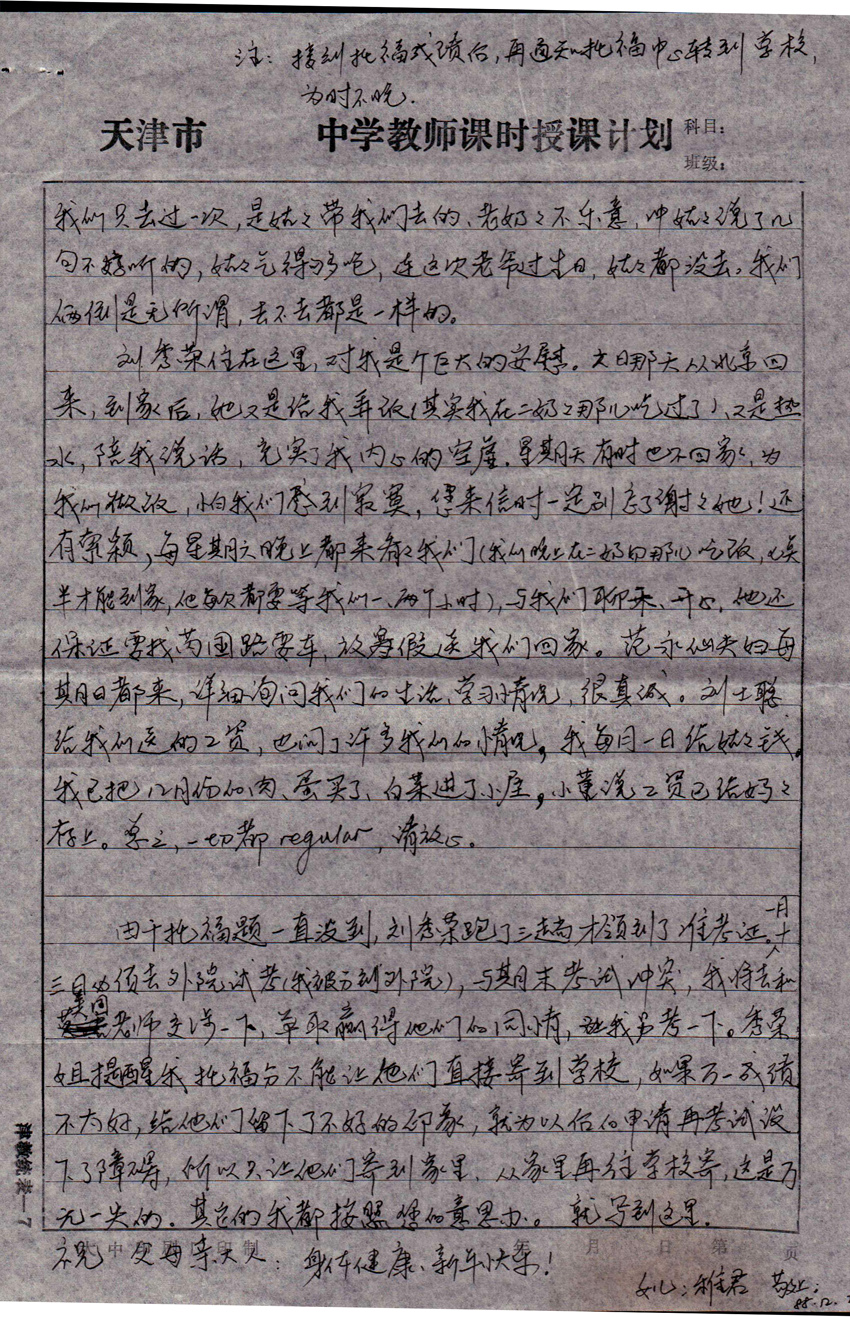 注：接到托福成绩后，再通知托福中心转到学校，
为时不晚．
天津市 中学教师课时授课计划 科目：
班级：
我们只去过一次，是姑々带我们去的、老奶々不乐意，冲姑々说了几
句不好听的，姑々气得够呛，连这次老爷过生日，姑々都没去。我们
俩倒是无所谓，去不去都是一样的。
刘秀荣住在这里，对我是个巨大的安慰。六日那天从北京回
来，到家后，她又是给我弄饭（其实我在二奶々那儿吃过了）、又是热
水，陪我说话，充实了我内心的空虚．星期天有时也不回家，为
我们做饭，怕我们感到寂寞，您来信时一定别忘了谢々她！还
有 颖，每星期六晚上都来看々我们（我们晚上在二奶奶那儿吃饭，八点
半才能到家，他每次都要等我们一、两个小时），与我们聊天、开心，他还
保证要找 国路要车，放寒假送我们回家。范永仙夫妇每
期日都来，详细询问我们的生活、学习情况，很真诚。刘士聪
给我们送的工资，也问了许多我们的情况，我每月一日给姑々钱．
我已把12月份的肉、蛋买了、白菜进了小屋，小董说工资已给妈々
存上。总之，一切都regular，请放心。
由于托福题一直没到，刘秀荣跑了三趟才领到了准考证。一月十
三日必须去外院试考（我被分到外院），与期末考试冲突，我将去和
美国老师交涉一下，争取赢得他们的同情，让我另考一下。秀荣
姐提醒我托福分不能让他们直接寄到学校，如果万一成绩
不太好，给他们留下了不好的印象，就为以后的申请再考试设
下了障碍，所以只让他们寄到家里．从家里再往学校寄，这是万
无一失的．其它的我都按照您的意思办。就写到这里．
祝 父母亲大人：身体健康、新年快乐！
年 月 日 第 页
女儿：稚君 敬上：
88.12.
津教 表—7